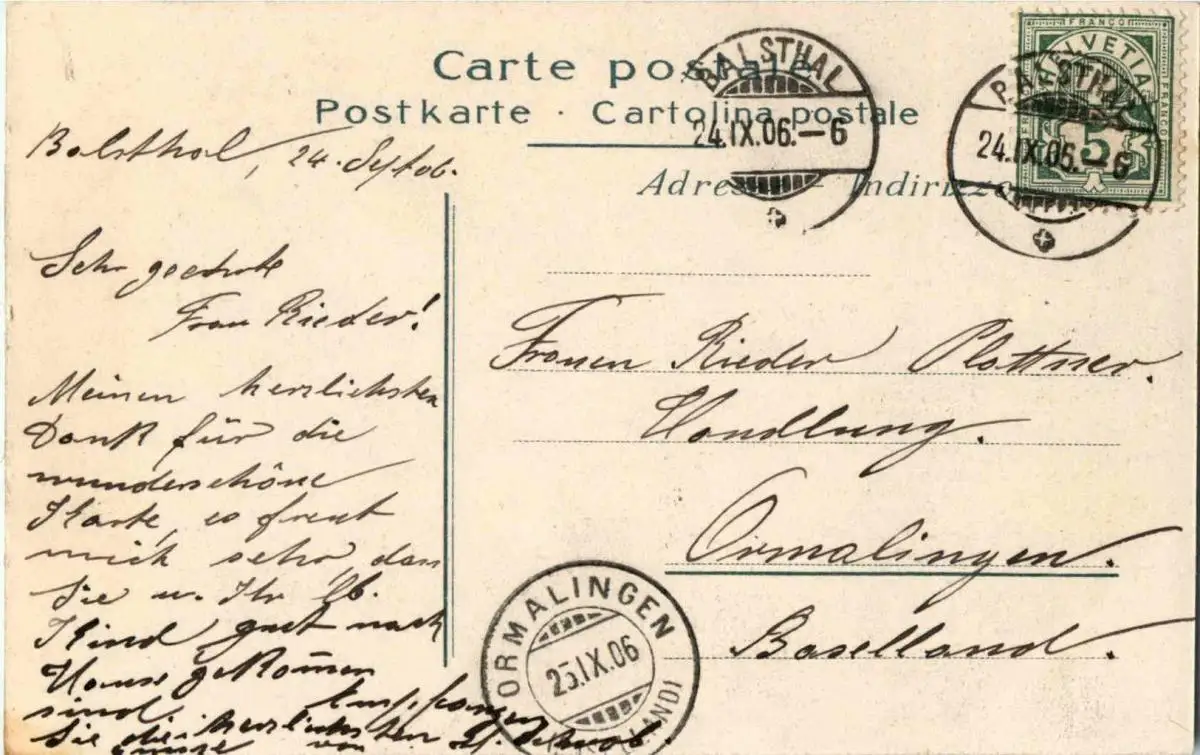 Carte postale
Postkarte · Cartolina postale
Adresse - Indirizzo
FRANCO
HELVETIA
FRANCO
5
BALSTHAL
24.IX.06.-6
BALSTHAL
24.IX.06.-6
Balsthal, 24. Septob.
Sehr geehrte
Frau Rieder!
Meinen herzlichsten
Dank für die
wunderschöne
Karte, es freut
mich sehr, dass
Sie u. Ihr lb.
Kind gut nach
Hause gekom̄en
sind. Empfangen
Sie die herzlichsten
von
Frauen Rieder Plattner.
Handlung.
Ormalingen.
Baselland.
ORMALINGEN
25.IX.06